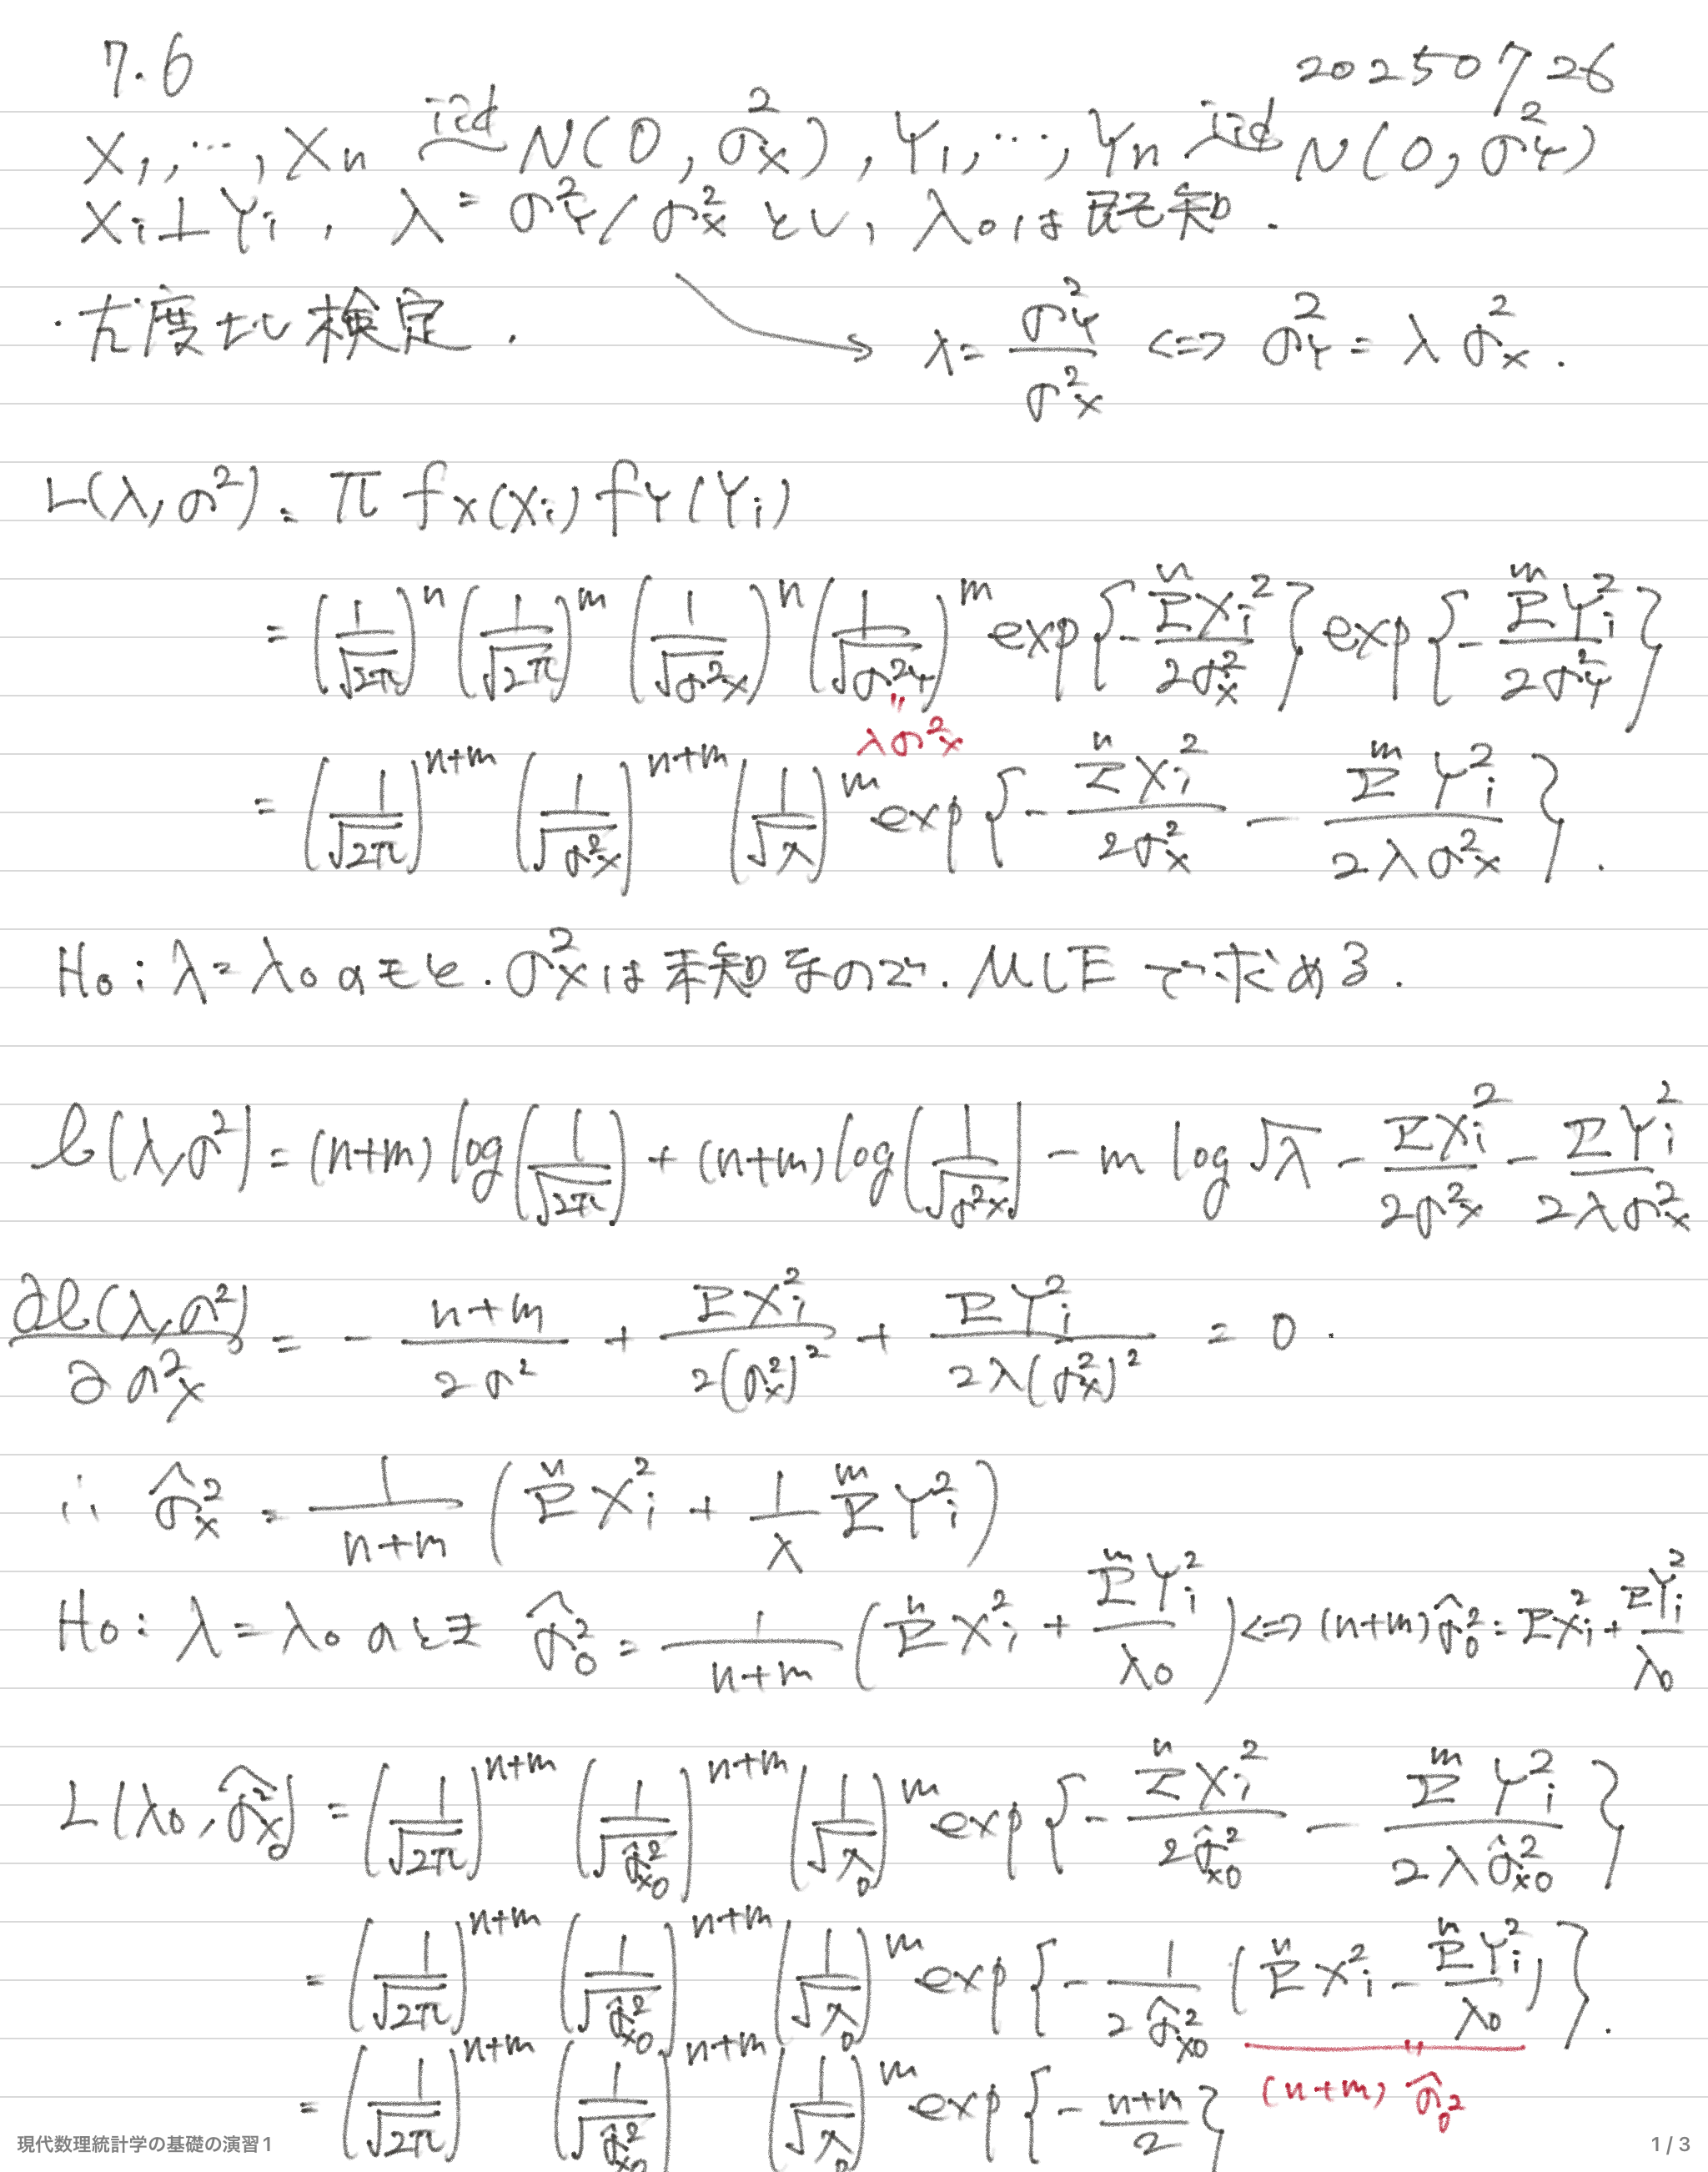 7.6
2025 07/26
X₁, …, Xₙ ~iid N(0, σ²_X), Y₁, …, Yₙ ~iid N(0, σ²_Y)
Xᵢ⊥Yᵢ, λ = σ²_Y/σ²_X とし, λ₀は既知.
・尤度比検定. → λ = σ²_Y/σ²_X ⇔ σ²_Y = λ σ²_X.
L(λ, σ²) = Π f_X(Xᵢ) f_Y(Yᵢ)
= (1/√2π)ⁿ (1/√2π)ᵐ (1/√σ²_X)ⁿ (1/√σ²_Y)ᵐ exp{-Σⁿ Xᵢ²/2σ²_X} exp{-Σᵐ Yᵢ²/2σ²_Y}
" λσ²_X
= (1/√2π)ⁿ⁺ᵐ (1/√σ²_X)ⁿ⁺ᵐ (1/√λ)ᵐ exp{-Σⁿ Xᵢ²/2σ²_X - Σᵐ Yᵢ²/2λσ²_X}.
H₀: λ=λ₀のもと. σ²_Xは未知なので. MLEで求める.
ℓ(λ, σ²) = (n+m) log(1/√2π) + (n+m) log(1/√σ²_X) - m log √λ - ΣXᵢ²/2σ²_X - ΣYᵢ²/2λσ²_X
∂ℓ(λ, σ²)/∂σ²_X = - (n+m)/2σ² + ΣXᵢ²/2(σ²_X)² + ΣYᵢ²/2λ(σ²_X)² = 0.
∴ σ̂²_X = 1/(n+m) (Σⁿ Xᵢ² + 1/λ Σᵐ Yᵢ²)
H₀: λ=λ₀のとき σ̂²₀ = 1/(n+m) (Σⁿ Xᵢ² + Σᵐ Yᵢ²/λ₀) ⇔ (n+m) σ̂²₀ = ΣXᵢ² + ΣYᵢ²/λ₀
L(λ₀, σ̂²_X0) = (1/√2π)ⁿ⁺ᵐ (1/√σ̂²_X0)ⁿ⁺ᵐ (1/√λ₀)ᵐ exp{-Σⁿ Xᵢ²/2σ̂²_X0 - Σᵐ Yᵢ²/2λσ̂²_X0}
= (1/√2π)ⁿ⁺ᵐ (1/√σ̂²_X0)ⁿ⁺ᵐ (1/√λ₀)ᵐ exp{-1/2σ̂²_X0 (Σⁿ Xᵢ² - Σⁿ Yᵢ²/λ₀)}.
" (n+m) σ̂₀²
= (1/√2π)ⁿ⁺ᵐ (1/√σ̂²_X0)ⁿ⁺ᵐ (1/√λ₀)ᵐ exp{-(n+m)/2}
現代数理統計学の基礎の演習1
1 / 3